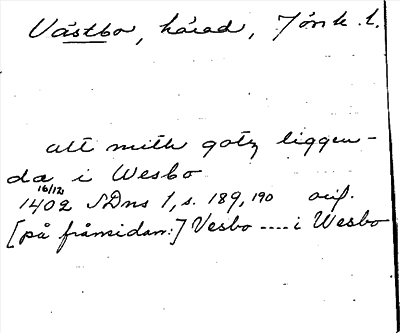 Västbo, härad, Jönk. l.
allt mith gotz liggen-
da i Wesbo
16/12 1402 SDns 1, s. 189, 190 avs.
[på framsidan:] Vesbo .... i Wesbo